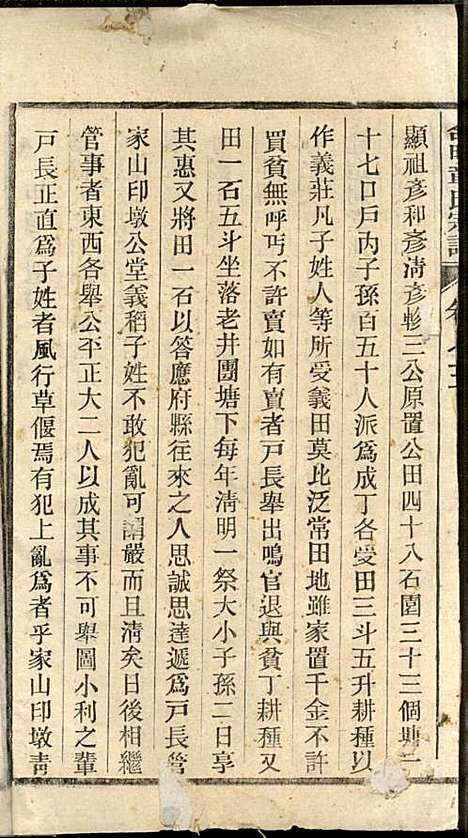 顯祖彥和彥清彥軫三公原置公田四十八石園三十三個塘二
十七口戶內子孫百五十人派為成丁各受田三斗五升耕種以
作義莊凡子姓人等所受義田莫比泛常田地雖家置千金不許
買貧無呼丐不許賣如有賣者戶長舉出鳴官退與貧丁耕種又
田一石五斗坐落老井團塘下每年清明一祭大小子孫二日享
其惠又將田一石以答應府縣往來之人思誠思達遞為戶長管
家山印墩公堂義稻子姓不敢犯亂可謂嚴而且清矣日後相繼
管事者東西各舉公平正大二人以成其事不可舉圖小利之輩
戶長正直為子姓者風行草偃焉有犯上亂為者乎家山印墩青